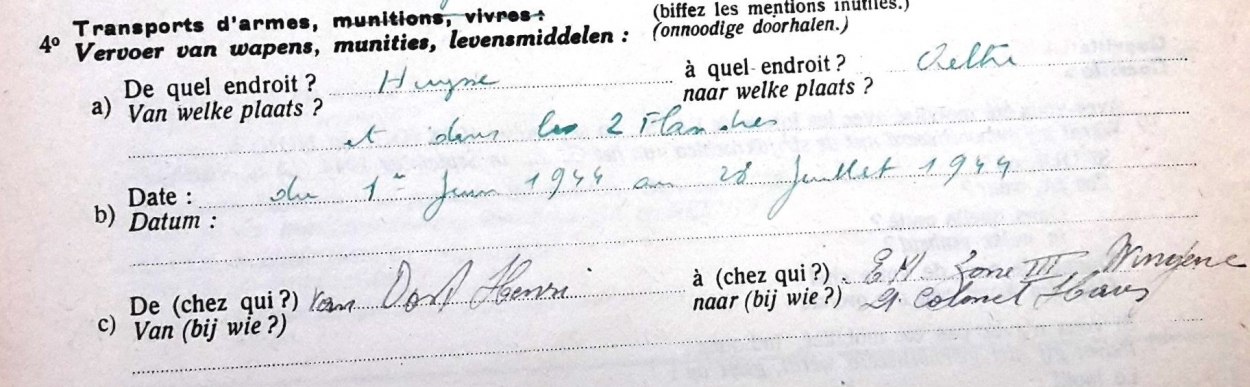 (biffez les mentions inutiles.)
4º Transports d'armes, munitions, vivres :
Vervoer van wapens, munities, levensmiddelen : (onnoodige doorhalen.)
a) De quel endroit ? Huyse à quel endroit ? Aeltre
Van welke plaats ? naar welke plaats ?
et dans les 2 Flandres
b) Date : du 1er juin 1944 au 28 juillet 1944
Datum :
c) De (chez qui ?) Van Henri à (chez qui ?) E M Zone III, Wingene
Van (bij wie ?) naar (bij wie ?) Lt Colonel Haus